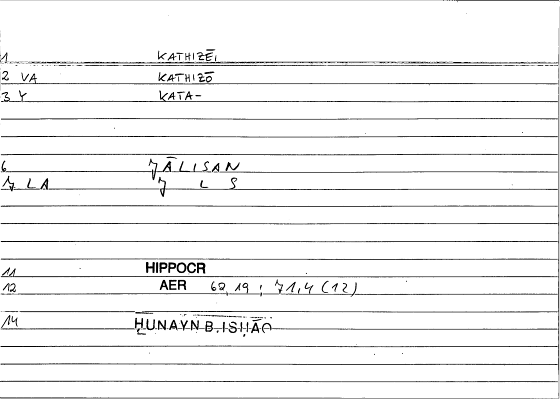 1 KATHIZĒI
2 VA KATHIZŌ
3 Y KATA-
6 ʒĀLISAN
7 LA ʒ L S
11 HIPPOCR
12 AER 68,19 ; 71,4 (12)
14 ḤUNAYN B. ISḤĀQ